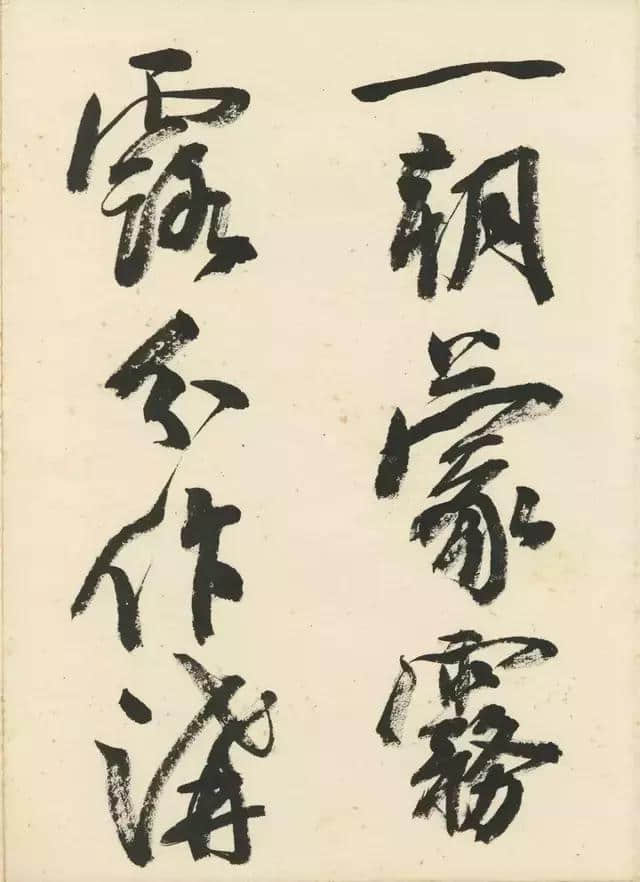 一朝蒙霧
露分作溝